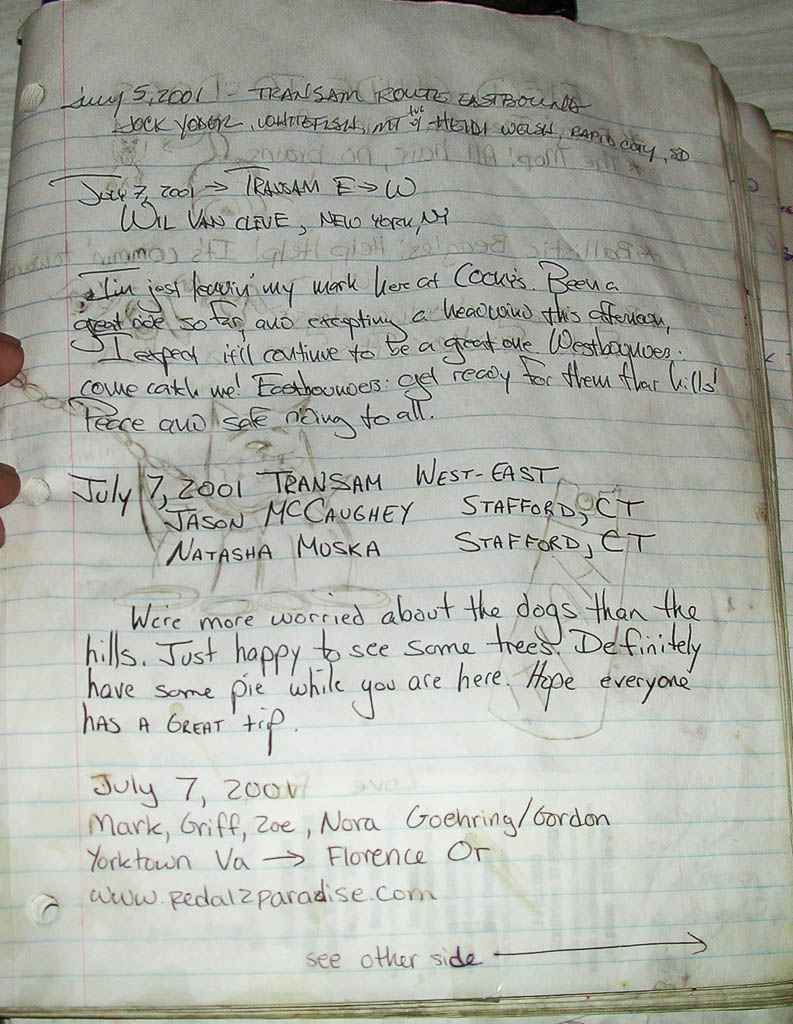 July 5, 2001 - TRANSAM ROUTE EASTBOUND
JOCK YODER, WHITEFISH, MT w/ HEIDI WELSH, RAPID CITY, SD
July 7, 2001 → TRANSAM E → W
WIL VAN CLEVE, NEW YORK, NY
I'm just leavin' my mark here at Cookie's. Been a
great ride so far, and excepting a headwind this afternoon,
I expect it'll continue to be a great one. Westbounders:
come catch me! Eastbounders: get ready for them thar hills!
Peace and safe riding to all.
July 7, 2001 TRANSAM WEST-EAST
JASON MCCAUGHEY STAFFORD, CT
NATASHA MOSKA STAFFORD, CT
We're more worried about the dogs than the
hills. Just happy to see some trees. Definitely
have some pie while you are here. Hope everyone
HAS A GREAT trip.
July 7, 2001
Mark, Griff, Zoe, Nora Goehring/Gordon
Yorktown Va → Florence Or
www.pedal2paradise.com
see other side →